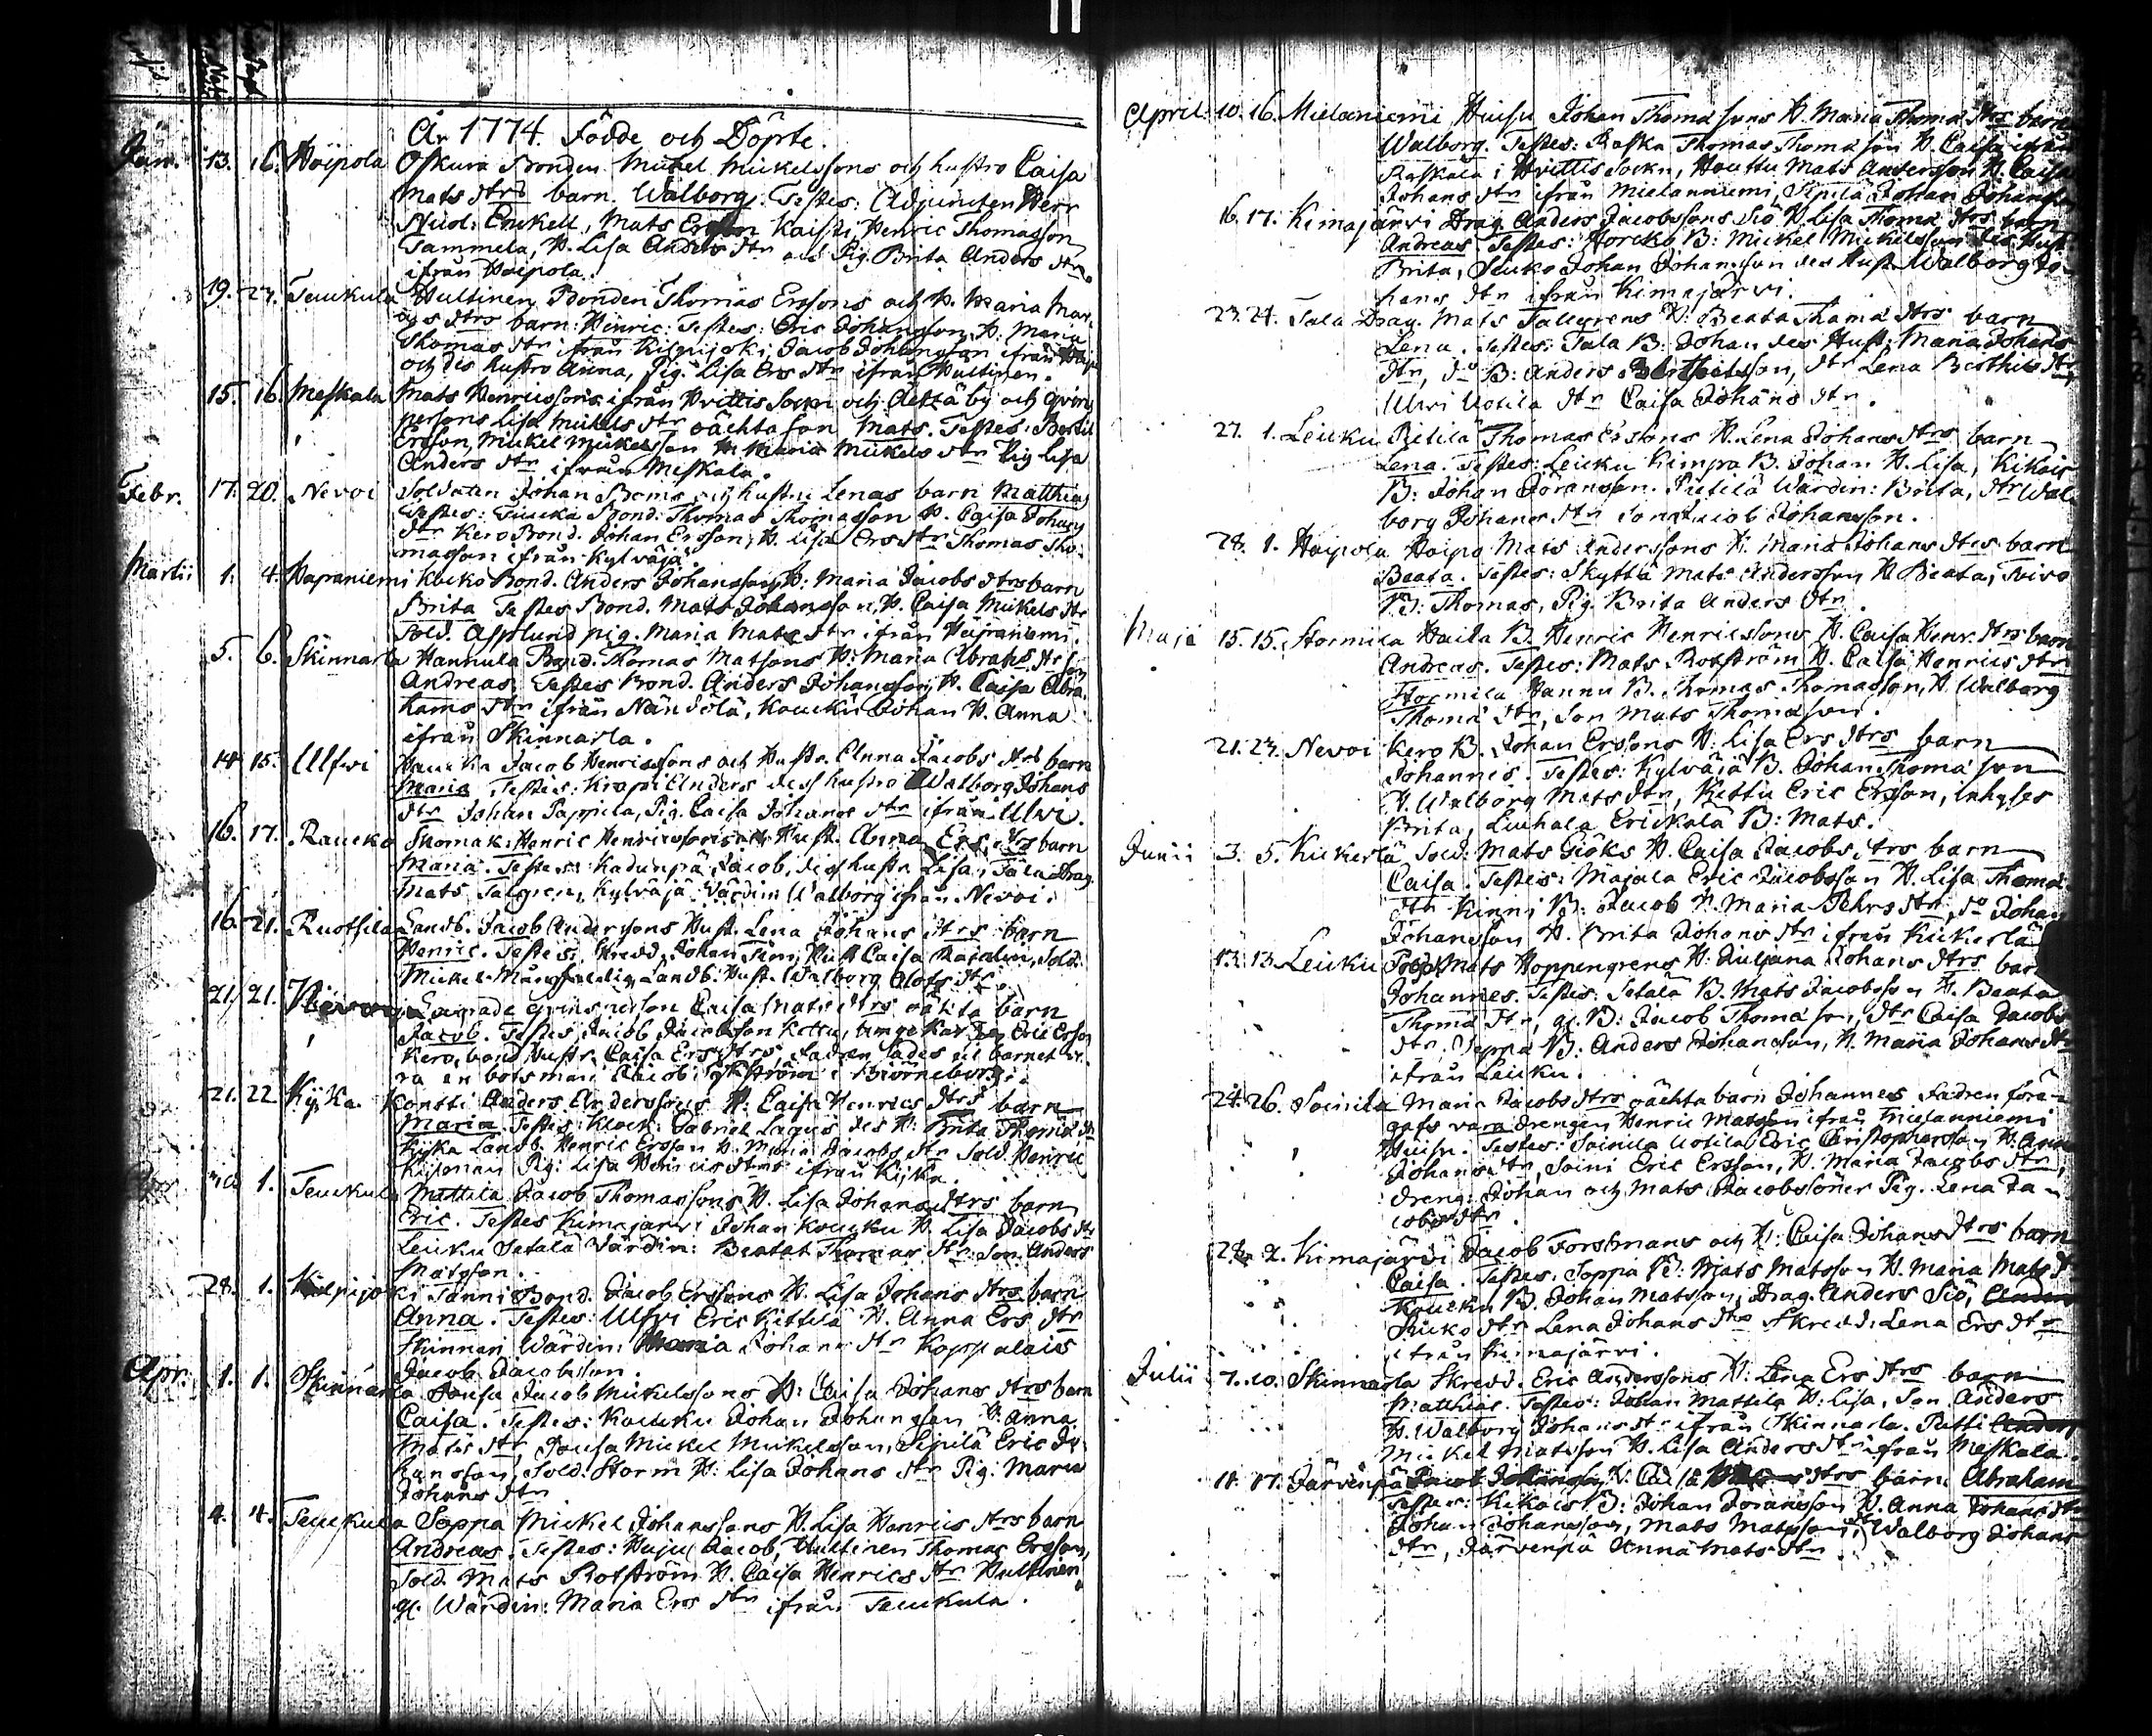 År 1774. Födde och Döpte.
Jan. 13. 16. Hoipola Oskura Bonden Mickel Mickelssons och hustro Caisa
Mats dtrs barn Walborg. Testes: Adjuncten Herr
Enckell, Mats Ersson Kaisti, Henric Thomasson
Tammela, H. Lisa Anders dtr och Pig. Brita Anders dtr
ifrån Hoipola.
19. 23. Teuckula Hultinen Bonden Thomas Erssons och H. Maria
dtrs barn: Henric: Testes: Eric Johansson, H. Maria
Thomas dtr ifrån Kilpijoki, Jacob Johansson ifrån
och des hustro Anna, Pig. Lisa Ers dtr ifrån Hultinen.
15. 16. Meskala Mats Henricssons ifrån Hvittis Socken och by och qvins
persons Lisa Mickels dtr oächta son Mats. Testes: Bertil
Ersson, Mickel Mickelsson H. Maria Mickels dtr Pig Lisa
Anders dtr ifrån Meskala.
Febr. 17. 20. Nevoi Soldaten Johan Boms och hustru Lenas barn Matthias
Testes: Bond. Thomas Thomasson H. Caisa Johans
dtr Kero Bond. Johan Ersson, H. Lisa Ers dtr Thomas Tho-
masson ifrån Kylväjä.
Martii 1. 4. Hapaniemi Koiko Bond. Anders Johanssons H: Maria Jacobs dtrs barn
Brita Testes Bond. Mats Johansson, H. Caisa Mickels dtr
Sold. Asplund pig. Maria Mats dtr ifrån Hapaniemi.
5. 6. Skinnarla Hannula Bond. Thomas Matsons H: Maria Abrah: dtr son
Andreas. Testes Bond. Anders Johansson, H. Caisa Abra-
hams dtr ifrån Nändelä, Koucku Johan H. Anna
ifrån Skinnarla.
14. 15. Ullfvi Jacob Henricssons och Hustr. Anna Jacobs dtrs barn
Maria Testes: Krapi Anders des hustro Walborg Johans
dtr Johan Pappila, Pig. Caisa Johans dtr ifrån Ulvi.
16. 17. Raucko Thomak Henric Henricssons Hust. Anna Ers dtrs barn
Maria. Testes: Jacob, des hustr. Lisa, Tala Drag.
Mats Talgren, Kylväjä Värdin Walborg ifrån Nevoi.
16. 21. Ruotsila Landb. Jacob Anderssons Hust. Lena Johans dtrs barn
Henric. Testes: Skredd. Johan Hust Caisa Sold.
Mickel Landb. Hust. Walborg Olofs dtr.
21. 21. qvinsperson Caisa Mats dtrs oäkta barn
Jacob. Testes Jacob Jacobsson Eric Ersson
Kero, bond Hustr. Caisa Ers dtrs, Fadren sades til barnet va-
ra en botsman Jacob i Björneborg.
21. 22. Kijka Kontti Anders Anderssons H: Caisa Henrics dtrs barn
Maria. Testes: Klock: Gabriel Lagus des H: Brita Thoma dtr
Kijka Landb. Henric Ersson H. Maria Jacobs dtr Sold. Henric
Pig: Lisa Henrics dtr ifrån Kijka.
30. 1. Teuckula Mattila Jacob Thomassons H. Lisa Johans dtrs barn
Eric. Testes Kimajärvi Johan Koucku H. Lisa Jacobs dtr
Leuku Satala Värdin: Beata Thomas dtr Son Anders
Matsson.
28. 1. Kilpijoki Tanni Bond. Jacob Erssons H. Lisa Johans dtrs barn
Anna. Testes: Ulfvi Eric Kittilä H. Anna Ers dtr
Skinnari Wärdin: Maria Johans dtr Koppalais
Jacob Jacobsson.
Apr. 1. 1. Skinnarla Jousa Jacob Mickelssons H: Caisa Johans dtrs barn
Caisa. Testes: Koucku Johan Johansson H. Anna
Mats dtr, Jousa Mickel Mickelsson, Sipilä Eric Jo-
hansson, Sold. Storm H: Lisa Johans dtr Pig: Maria
Johans dtr
4. 4. Teuckula Soppa Mickel Johanssons H. Lisa Henrics dtrs barn
Andreas. Testes: Huju Jacob, Hultinen Thomas Ersson,
Sold. Mats Rotström H. Caisa Henrics dtr Hultinen
gl. Wärdin: Maria Ers dtr ifrån Teuckula.
April. 10. 16. Mielaniemi Huisu Johan Thomassons H. Maria Thoma dtrs barn
Walborg. Testes: Raska Thomas Thomasson H. Caisa ifrån
Raskala i Hvittis Socken, Houttu Mats Andersson H. Caisa
Johans dtr ifrån Mielanniemi, Sipilä Johan Johansson
16. 17. Kimajärvi Drag. Anders Jacobssons Siö H. Lisa Thoma dtrs barn
Andreas Testes: B: Mickel Mickelsson des Hust
Brita, Seuko Johan Johansson des Hust. Walborg Jo-
hans dtr ifrån Kimajärvi.
23. 24. Tala Drag. Mats Tallgrens H: Beata Thoma dtrs barn
Lena. Testes: Tala B: Johan des Hust: Maria Johans
dtr, do B: Anders Berthilsson, dtr Lena Berthils dtr,
Ulvi Uotila dtr Caisa Johans dtr.
27. 1. Leuku Pietilä Thomas Erssons H. Lena Johans dtrs barn
Lena. Testes: Leuku Kimpa B. Johan H. Lisa, Kikois
B: Johan Göransson. Pietilä Wärdin: Brita, dtr Wal-
borg Johans dtr Son Jacob Johansson.
28. 1. Hoipola Hoipo Mats Anderssons H. Maria Johans dtrs barn
Beata. Testes: Skyttä Mats Andersson H Beata, Toivo
B: Thomas, Pig. Brita Anders dtr.
Maji 15. 15. Stormila Haila B. Henric Henricssons H. Caisa Henr. dtrs barn
Andreas. Testes: Mats Rotström H. Caisa Henrics dtr
Stormila Hannu B. Thomas Thomasson, H. Walborg
Thoma dtr, Son Mats Thomasson.
21. 23. Nevoi Kero B. Johan Erssons H: Lisa Ers dtrs barn
Johannes. Testes: Kylväjä B. Johan Thomasson
H. Walborg Mats dtr, Kettu Eric Ersson, inhyses
Brita, Leuhala Erickala B: Mats.
Junii 3. 5. Kukerlä Sold: Mats Giöks H. Caisa Jacobs dtrs barn
Caisa. Testes: Majala Eric Jacobsson H. Lisa Thoma
dtr Kinni B: Jacob H. Maria Pehrs dtr, do Johan
Johansson H. Brita Johans dtr ifrån Kukerlä
13. 13. Leuku Mats Hoppengrens H. Juliana Johans dtrs barn
Johannes. Testes: Satala B. Mats Jacobsson H. Beata
Thoma dtr, gl. B: Jacob Thomasson, dtr Caisa Jacobs
dtr. Seppä B: Anders Johansson, H. Maria Johans dtr
ifrån Leuku.
24. 26. Soinila Maria Jacobs dtrs oächta barn Johannes Fadren före-
gafs vara drengen Henric Matsson ifrån Mielanniemi
Huisu. Testes: Soinila Uotila Eric Christophersson H. Anna
Johans dtr, Soini Eric Ersson, H. Maria Jacobs dtr,
Dreng: Johan och Mats Jacobssöner Pig. Lena Ja-
cobs dtr.
28. 2. Kimajärvi Jacob Forstmans och H: Caisa Johans dtrs barn
Caisa. Testes: Soppa B: Mats Matsson H. Maria Mats dr
Koucku B. Johan Matsson, Drag. Anders Siö,
Seuko dtr Lena Johans dtr Skredd. Lena Ers dtr
ifrån Kimajärvi.
Julii 7. 10. Skinnarla Skredd. Eric Anderssons H: Lena Ers dtrs barn
Matthias. Testes: Johan Mattila H. Lisa, Son Anders
H. Walborg Johans dtr ifrån Skinnarla. Patti
Mickel Matsson H. Lisa Anders dtr ifrån Meskala.
11. 17. Järvenpä Jacob Johansson H. Caisa dtrs barn Abraham
Testes: Kikois B: Johan Göransson H. Anna Johans dtr
Johan Johansson, Mats Matsson, Walborg Johans
dtr, Järvenpä Anna Mats dtr.